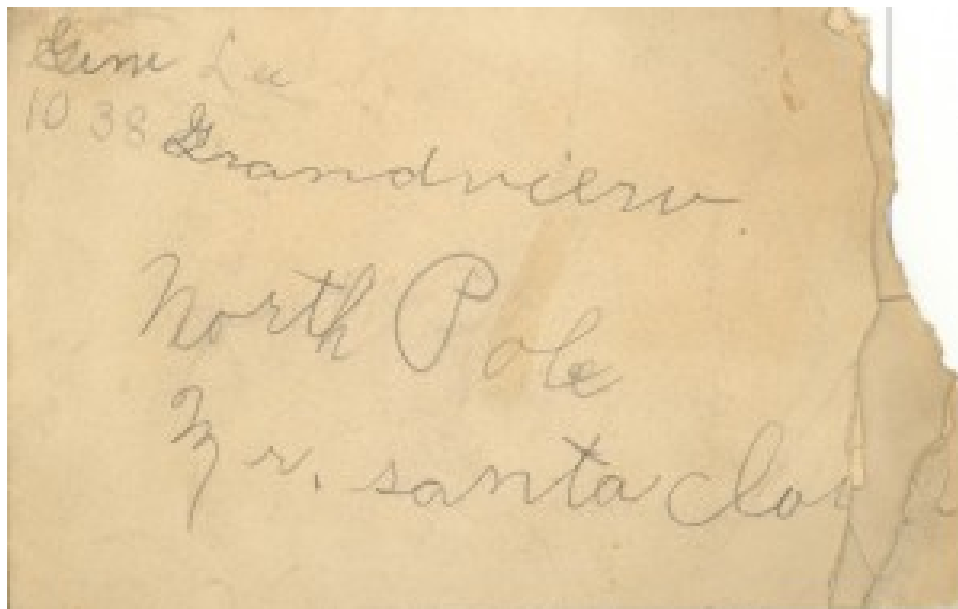 Gene Lee
1038 Grandview
North Pole
Mr. santa